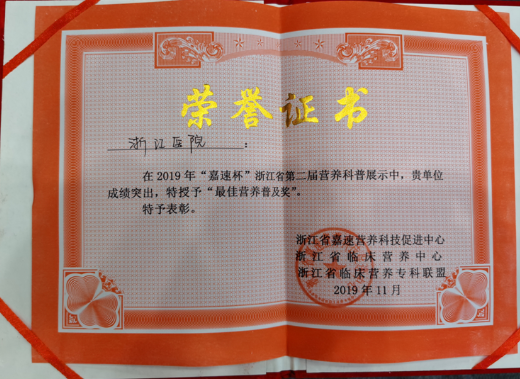 荣誉证书
浙江医院：
在2019年“嘉速杯”浙江省第二届营养科普展示中，贵单位
成绩突出，特授予“最佳营养普及奖”。
特予表彰。
浙江省嘉速营养科技促进中心
浙江省临床营养中心
浙江省临床营养专科联盟
2019年11月